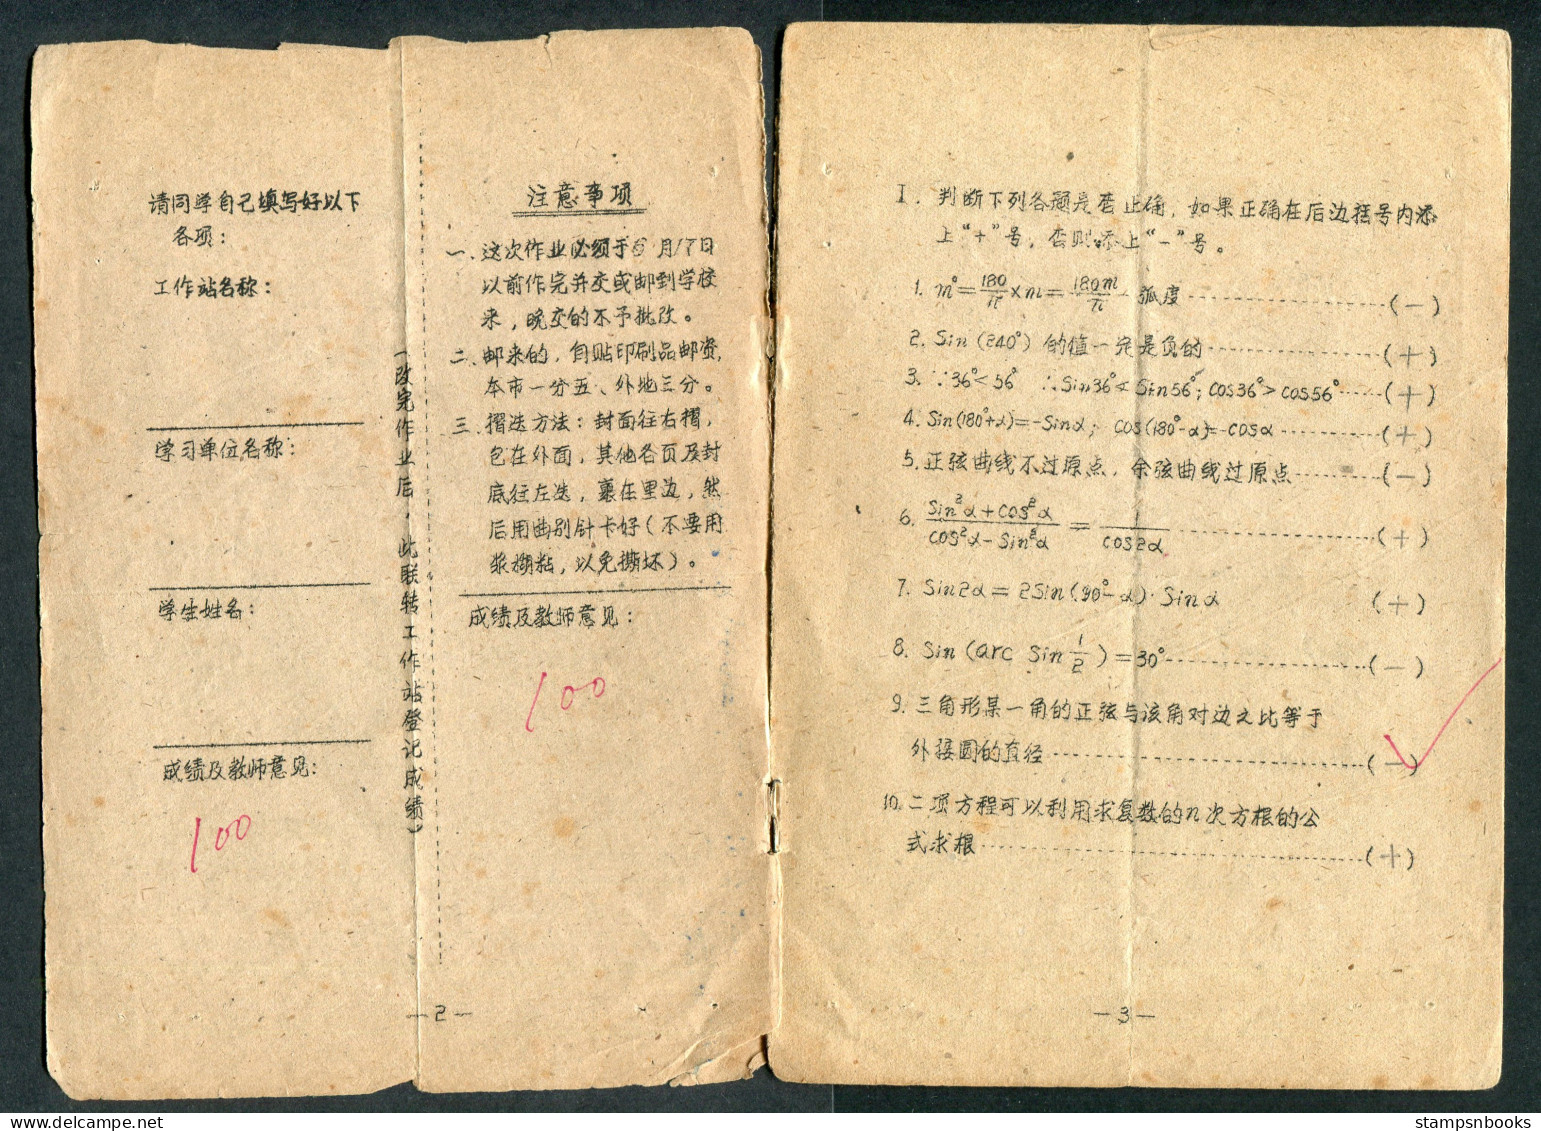 请同学自己填写好以下
各项：
工作站名称：
学习单位名称：
学生姓名：
成绩及教师意见：
100
（改完作业后，此联转工作站登记成绩）
注意事项
一、这次作业必须于6月17日
以前作完并交或邮到学校
来，晚交的不予批改。
二、邮来的，自贴印刷品邮资，
本市一分五、外地三分。
三、摺迭方法：封面往右摺，
包在外面，其他各页及封
底往左迭，裹在里边，然
后用曲别针卡好（不要用
浆糊粘，以免撕坏）。
成绩及教师意见：
100
—2—
I. 判断下列各题是否正确，如果正确在后边括号内添
上“+”号，否则添上“-”号。
1. m°=180/π×m=180m/π 弧度……………(—)
2. Sin(240°)的值一定是负的……………(+)
3. ∵36°<56° ∴Sin36°<Sin56°; cos36°>cos56°……(+)
4. Sin(180°+α)=-Sinα; cos(180°-α)=-cosα…………(+)
5. 正弦曲线不过原点，余弦曲线过原点………(—)
6. Sin²α+cos²α/cos²α-Sin²α = 1/cos2α……………(+)
7. Sin2α=2Sin(90°-α)·Sinα (+)
8. Sin(arc Sin 1/2)=30°……………(—)
9. 三角形某一角的正弦与该角对边之比等于
外接圆的直径……………(—)
10. 二项方程可以利用求复数的n次方根的公
式求根……………(+)
—3—
stampsnbooks